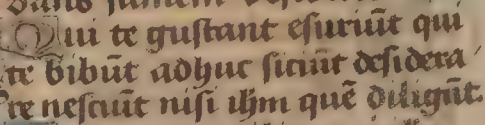 Qui te gustant esuriūt qui
te bibūt adhuc siciūt desidera
re nesciūt nisi ihm quē diligūt.